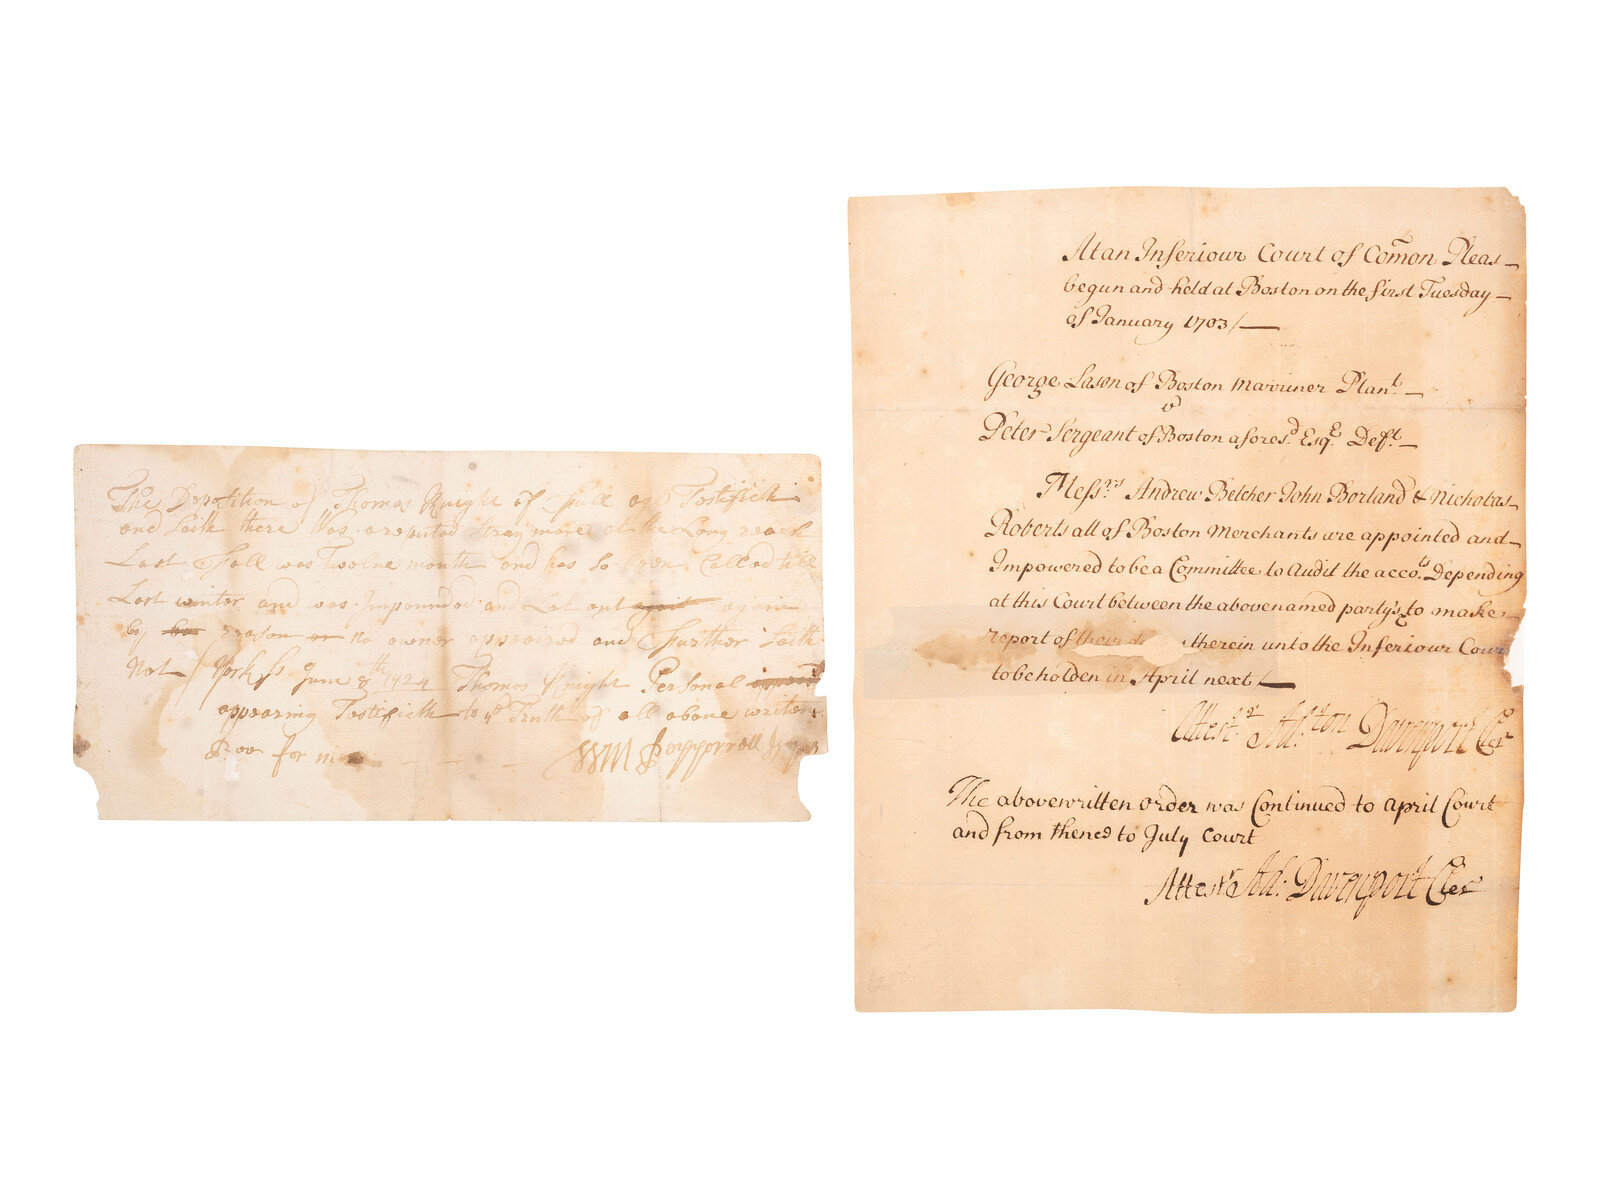 The Deposition of Thomas Knight of full age Testifieth
and saith there Was a reputed stray mare at the Long reach
Last Fall was Twelve month and has so been Called till
Last winter and was Impounded and Let out again
by reason no owner appeared and Further Saith
Not / York Ss June 8th 1724 Thomas Knight Personal
appearing Testifieth to ye Truth of all above written
Before me Wm Pepperrell
At an Inferiour Court of Comon Pleas
begun and held at Boston on the first Tuesday
of January 1703/
George Lason of Boston Marriner Plant.
v
Peter Sergeant of Boston aforesd. Esqr. Deft.
Messrs. Andrew Belcher John Borland & Nicholas
Roberts all of Boston Merchants are appointed and
Impowered to be a Committee to Audit the accots. Depending
at this Court between the abovenamed party's to make
report of their therein unto the Inferiour Court
to beholden in April next/
Attestr. Addton Davenport Cler
The abovewritten order was Continued to April Court
and from thence to July Court
Attestr Add: Davenport Cler